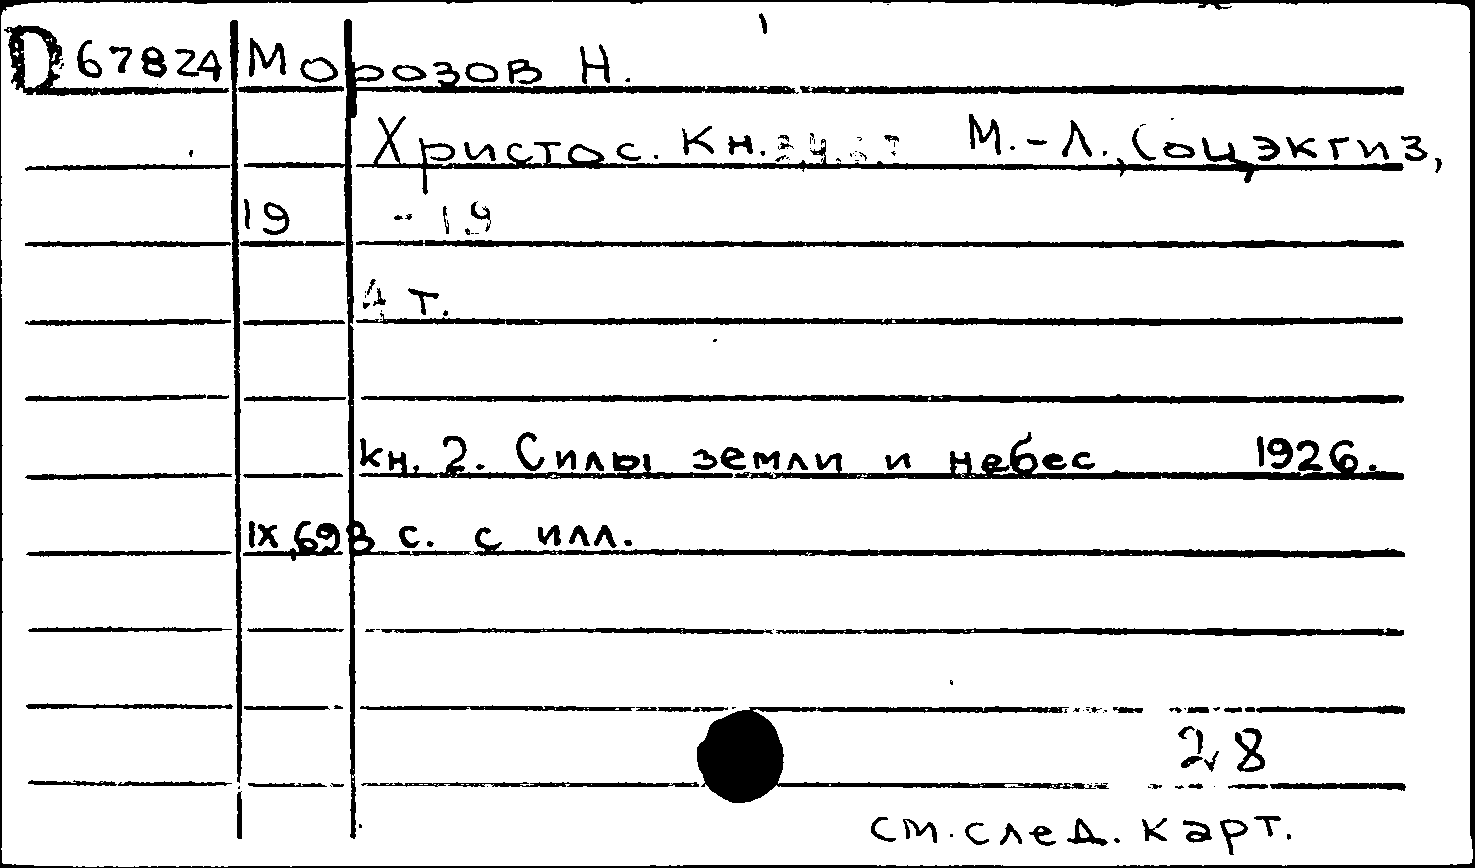 D 67824 Морозов Н.
Христос. Кн. М.-Л., Соцэкгиз,
19 - 19
4 т.
кн. 2. Силы земли и небес 1926.
IX, 698 с. с илл.
28
см. след. карт.